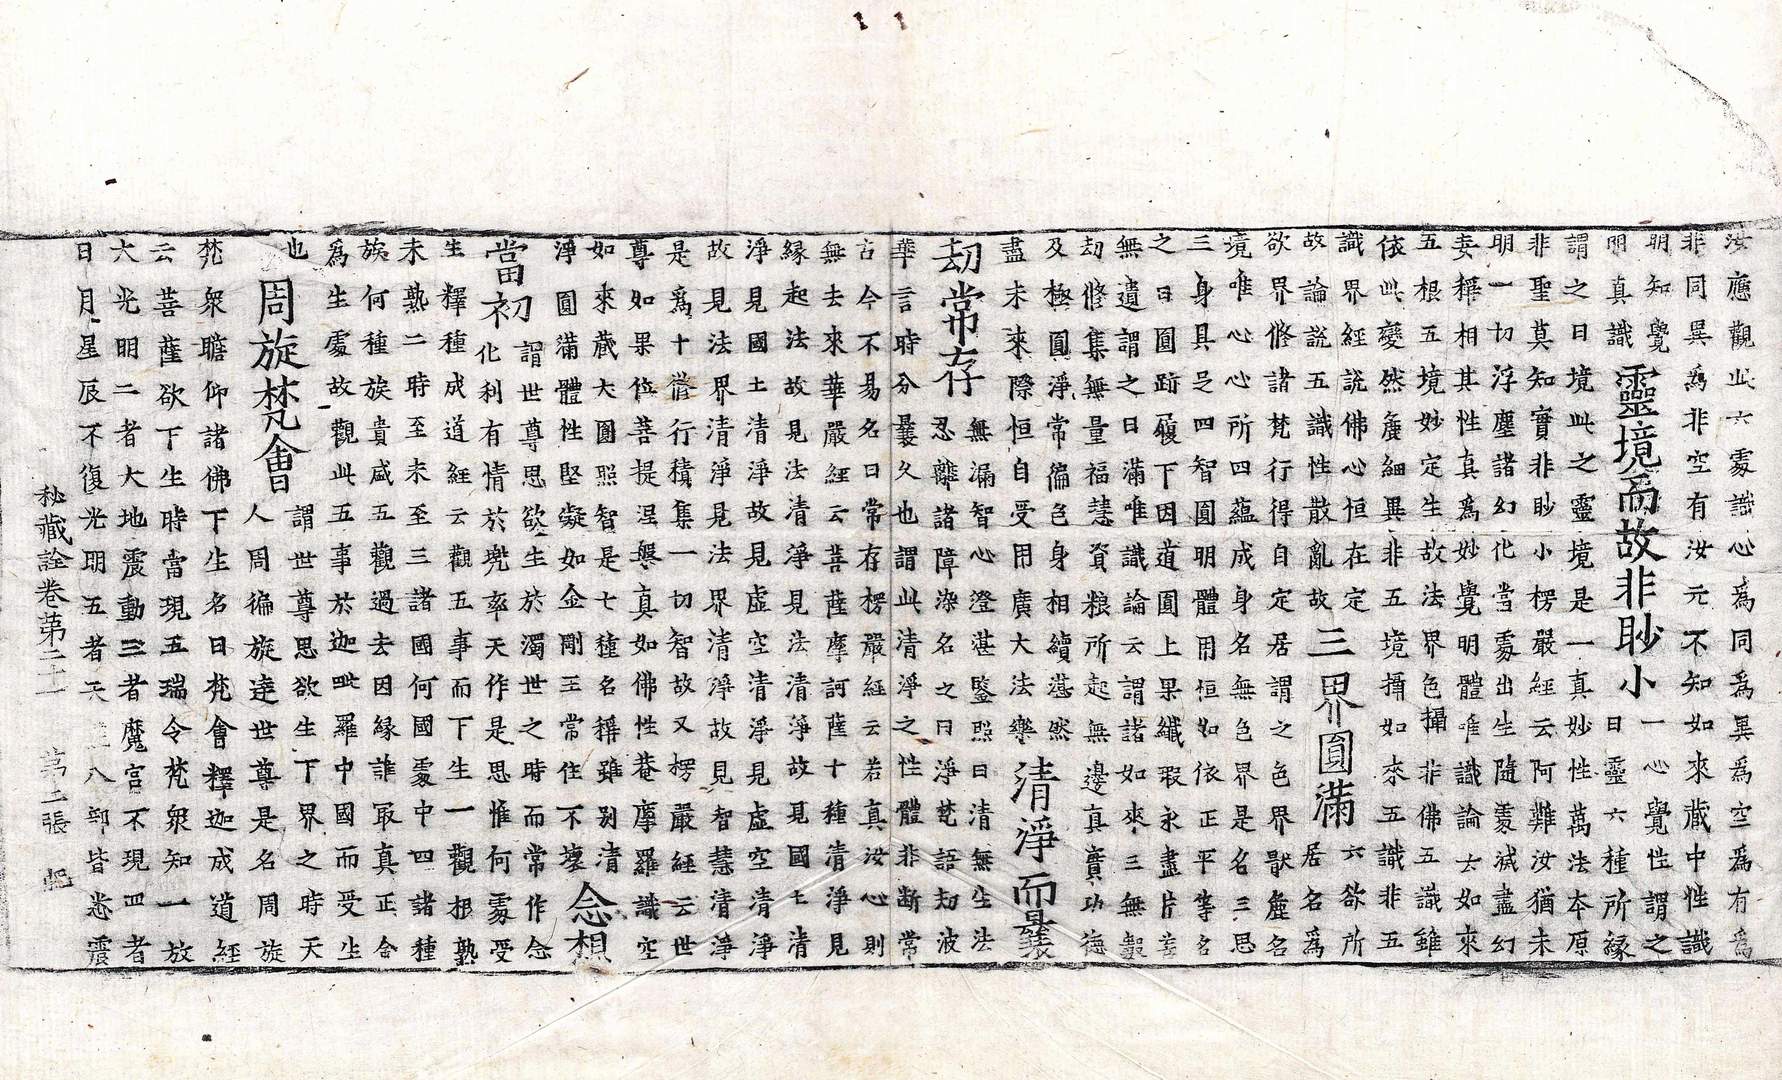 汝應觀此六處識心為同為異為空為有為
非同異為非空有汝元不知如來藏中性識
明知覺明真識靈境爲而故非眇小一心覺性謂之
謂之曰境此之靈境是一真妙性萬法本原
非聖莫知實非眇小楞嚴經云阿難汝猶未
明一切浮塵諸幻化當處出生隨處滅盡幻
妄稱相其性真爲妙覺明體唯識論云如來
五根五境妙定生故法界色攝非佛五識雖
依此變然麁細異非五境攝如來五識非五
識界經說佛心恒在定
故論說五識性散亂故三界圓滿居六欲所
欲界修諸梵行得自定居謂之色界猒麁名
境唯心心所四蘊成身名無色界是名三思
三身具足四智圓明體用恒如依正平等名
之曰圓跡履下因道圓上果纖瑕永盡片善
無遺謂之曰滿唯識論云謂諸如來三無數
劫修集無量福慧資粮所起無邊真實功德
及極圓淨常徧色身相續湛然
盡未來際恒自受用廣大法樂清淨而曩
劫常存無漏智心澄湛鑒照曰清無生法
忍離諸障染名之曰淨梵語劫波
華言時分曩久也謂此清淨之性體非断常
古今不易名曰常存楞嚴經云若真汝心則
無去來華嚴經云菩薩摩訶薩十種清淨見
緣起法故見法清淨見法清淨故見國土清
淨見國土清淨故見虛空清淨見虛空清淨
故見法界清淨見法界清淨故見智慧清淨
是爲十修行積集一切智故又楞嚴經云世
尊如果位菩提涅槃真如佛性菴摩羅識空
如來藏大圓照智是七種名稱雖别清
淨圓滿體性堅凝如金剛王常住不壞念想
當初謂世尊思欲生於濁世之時而常作念
化利有情於兜率天作是思惟何處受
生釋種成道經云觀五事而下生一觀根熟
未熟二時至未至三諸國何國處中四諸種
族何種族貴咸五觀過去因緣誰冣真正合
爲生處故觀此五事於迦毗羅中國而受生
也周旋梵會謂世尊思欲生下界之時天
人周徧旋遶世尊是名周旋
梵衆瞻仰諸佛下生名曰梵會釋迦成道經
云菩薩欲下生時當現五瑞令梵衆知一放
大光明二者大地震動三者魔宮不現四者
日月星辰不復光明五者天 八部皆悉震
秘藏詮卷第二十一 第二張